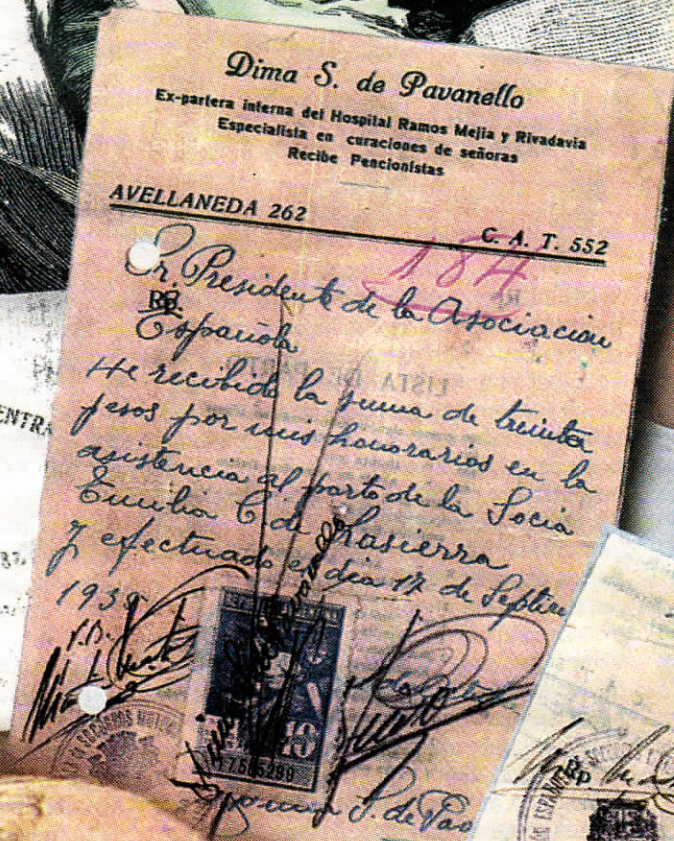 Dima S. de Pavanello
Ex-partera interna del Hospital Ramos Mejia y Rivadavia
Especialista en curaciones de señoras
Recibe Pencionistas
AVELLANEDA 262
C. A. T. 552
184
Sr. Presidente de la Asociación
Rp.
Española
He recibido la suma de treinta
pesos por mis honorarios en la
asistencia al parto de la Socia
Emilia C de Lasierra
y efectuado el dia 17 de Septiem
1935
V.B.
10
Dima S. de Pav
ENTRA
Rp.